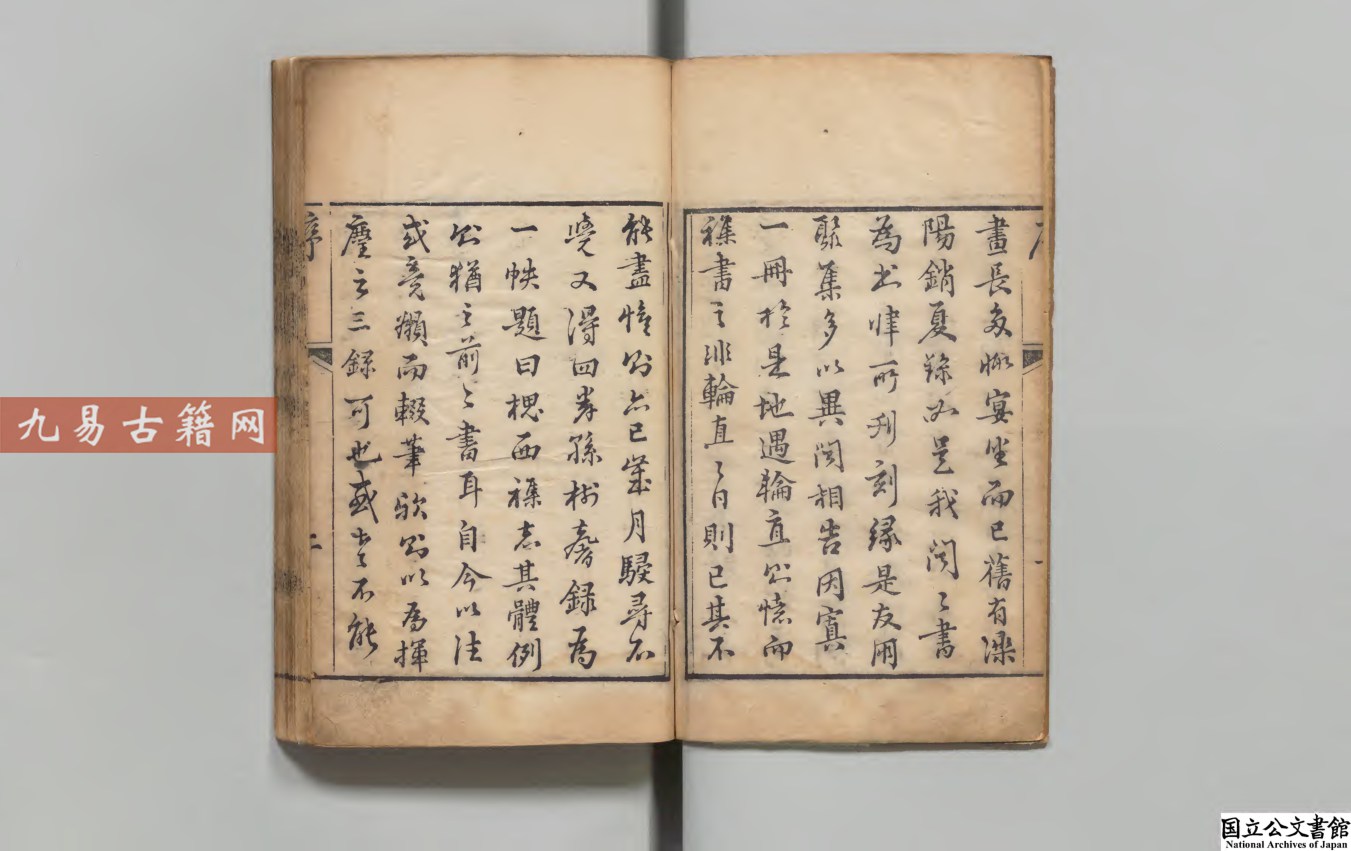 晝長多暇宴坐而已舊有灤
陽銷夏錄如是我聞二書
為書肆所刊刻緣是友朋
聚集多以異聞相告因寘
一冊於是地遇輪直則憶而
雜書之非輪直之日則已其不
能盡憶則亦已歲月駸尋不
覺又得四卷孫樹馨錄為
一帙題曰槐西雜志其體例
則猶之前二書耳自今以往
或竟嬾而輟筆歟則以為揮
麈之三錄可也或老不能
序
二
九易古籍网
国立公文書館
National Archives of Japan